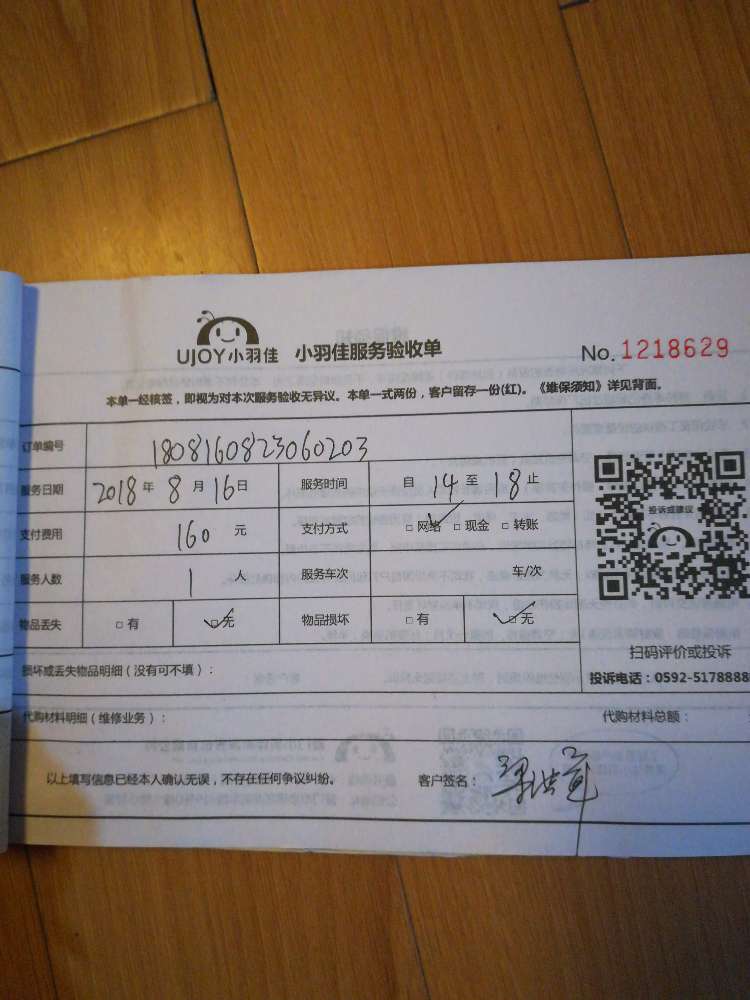 UJOY小羽佳 小羽佳服务验收单 No. 1218629
本单一经核签，即视为对本次服务验收无异议。本单一式两份，客户留存一份(红)。《维保须知》详见背面。
订单编号 1808160823060203
服务日期 2018年8月16日 服务时间 自14至18止
支付费用 160元 支付方式 □网络 □现金 □转账
服务人数 1人 服务车次 车/次
物品丢失 □有 □无 物品损坏 □有 □无
投诉或建议
扫码评价或投诉
投诉电话：0592-5178888
损坏或丢失物品明细（没有可不填）：
代购材料明细（维修业务）： 代购材料总额：
以上填写信息已经本人确认无误，不存在任何争议纠纷。 客户签名：